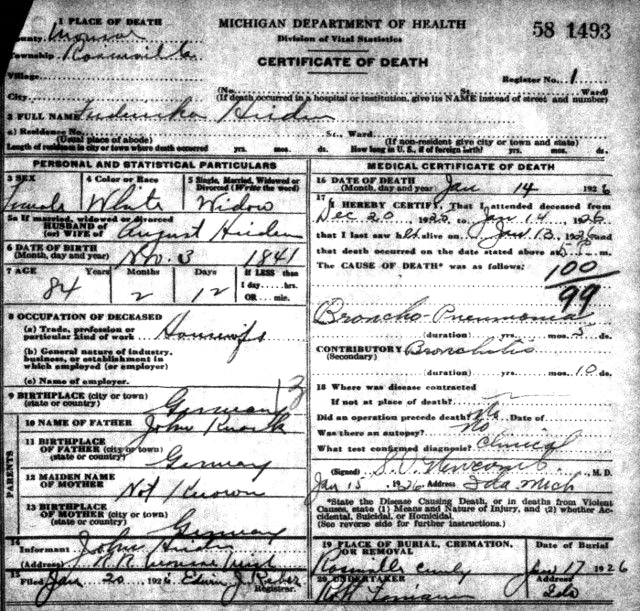 1 PLACE OF DEATH
MICHIGAN DEPARTMENT OF HEALTH
58 1493
County Monroe
Division of Vital Statistics
Township
CERTIFICATE OF DEATH
Village
Register No. 1
City
(No. St. Ward)
(If death occurred in a hospital or institution, give its NAME instead of street and number)
2 FULL NAME
a) Residence No. St., Ward.
(Usual place of abode) (If non-resident give city or town and state)
Length of residence in city or town where death occurred yrs. mos. ds. How long in U. S., if of foreign birth? yrs. mos. ds.
PERSONAL AND STATISTICAL PARTICULARS
3 SEX
4 Color or Race
5 Single, Married, Widowed or Divorced (Write the word)
Female White Widow
5a If married, widowed or divorced
HUSBAND of
(or) WIFE of August
6 DATE OF BIRTH
(Month, day and year) Nov. 3 1841
7 AGE Years Months Days If LESS than
1 day.....hrs.
OR.....min.
84 2 12
8 OCCUPATION OF DECEASED
(a) Trade, profession or
particular kind of work Housewife
(b) General nature of industry,
business, or establishment in
which employed (or employer)
(c) Name of employer.
9 BIRTHPLACE (city or town)
(state or country) Germany
PARENTS
10 NAME OF FATHER John
11 BIRTHPLACE
OF FATHER (city or town)
(state or country) Germany
12 MAIDEN NAME
OF MOTHER Not Known
13 BIRTHPLACE
OF MOTHER (city or town)
(state or country) Germany
14
Informant John
(Address) R.R. Monroe Mich
15
Filed Jan 20 1926 Edwin J.
MEDICAL CERTIFICATE OF DEATH
16 DATE OF DEATH
(Month, day and year) Jan 14 1926
17
I HEREBY CERTIFY, That I attended deceased from
Dec 20, 1925 to Jan 14, 1926
that I last saw her alive on Jan 13, 1926 and
that death occurred on the date stated above at 5 P m.
The CAUSE OF DEATH* was as follows:
100
99
Broncho-Pneumonia
(duration) yrs. mos. 5 ds.
CONTRIBUTORY Bronchitis
(Secondary)
(duration) yrs. mos. 10 ds.
18 Where was disease contracted
If not at place of death?
Did an operation precede death? No Date of
Was there an autopsy? No
What test confirmed diagnosis? Clinical
(Signed) Newcomb, M. D.
Jan 15 1926 Address Ida Mich
*State the Disease Causing Death, or in deaths from Violent
Causes, state (1) Means and Nature of Injury, and (2) whether Ac-
cidental, Suicidal, or Homicidal.
(See reverse side for further instructions.)
19 PLACE OF BURIAL, CREMATION,
OR REMOVAL
Date of Burial
Jan 17 1926
20 UNDERTAKER
Address
Ida